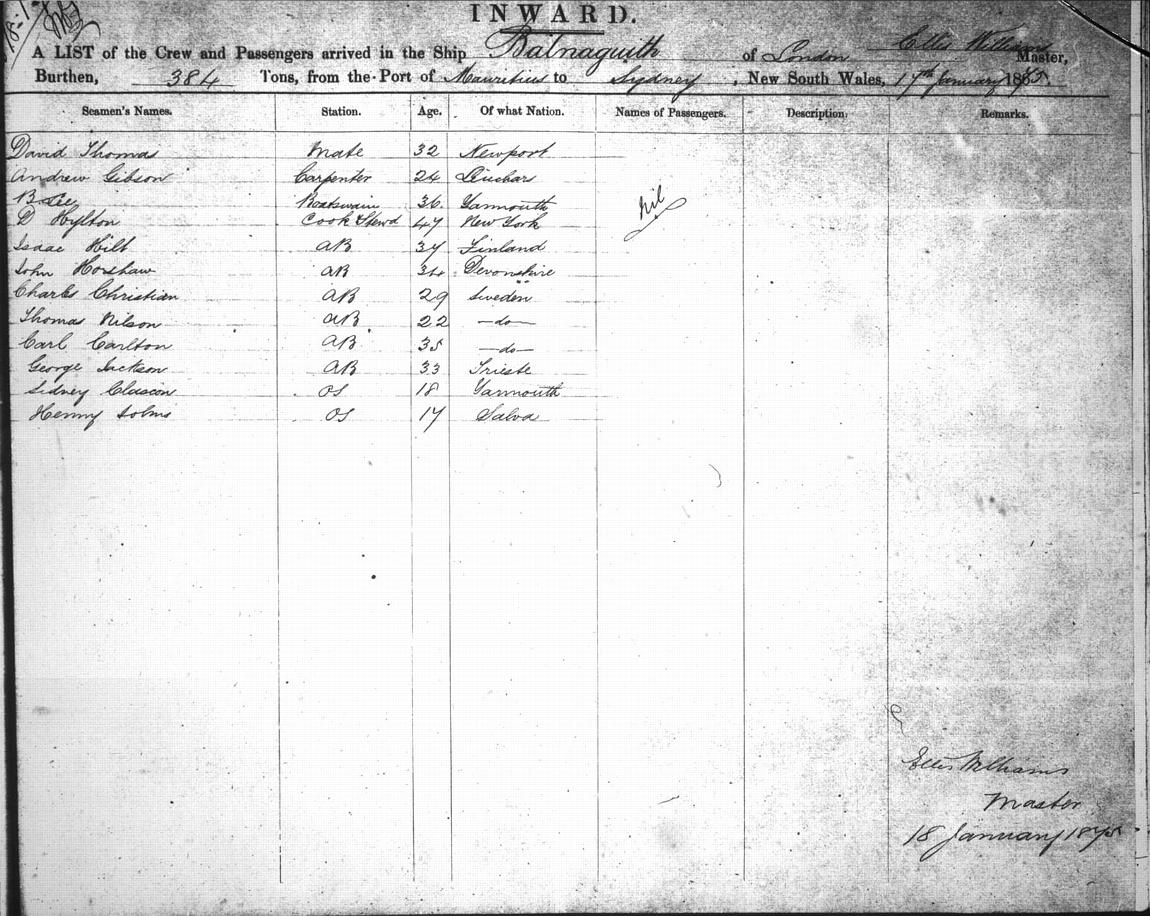 INWARD.
A LIST of the Crew and Passengers arrived in the Ship Balnaguith of London Ellis Williams Master,
Burthen, 384 Tons, from the Port of Mauritius to Sydney, New South Wales, 17th January 1875.
Seamen's Names. Station. Age. Of what Nation. Names of Passengers. Description. Remarks.
David Thomas Mate 32 Newport
Andrew Gibson Carpenter 24 Leuchars
B Lee Boatswain 36 Yarmouth Nil
D Hylton Cook & Stewd 47 New York
Isaac Hilt AB 37 Finland
John Horshaw AB 34 Devonshire
Charles Christian AB 29 Sweden
Thomas Nilson AB 22 -do-
Carl Carlton AB 35 -do-
George Jackson AB 33 Trieste
Sidney Clascon OS 18 Yarmouth
Henny Solms OS 17 Salva
Ellis Williams
Master
18 January 1875